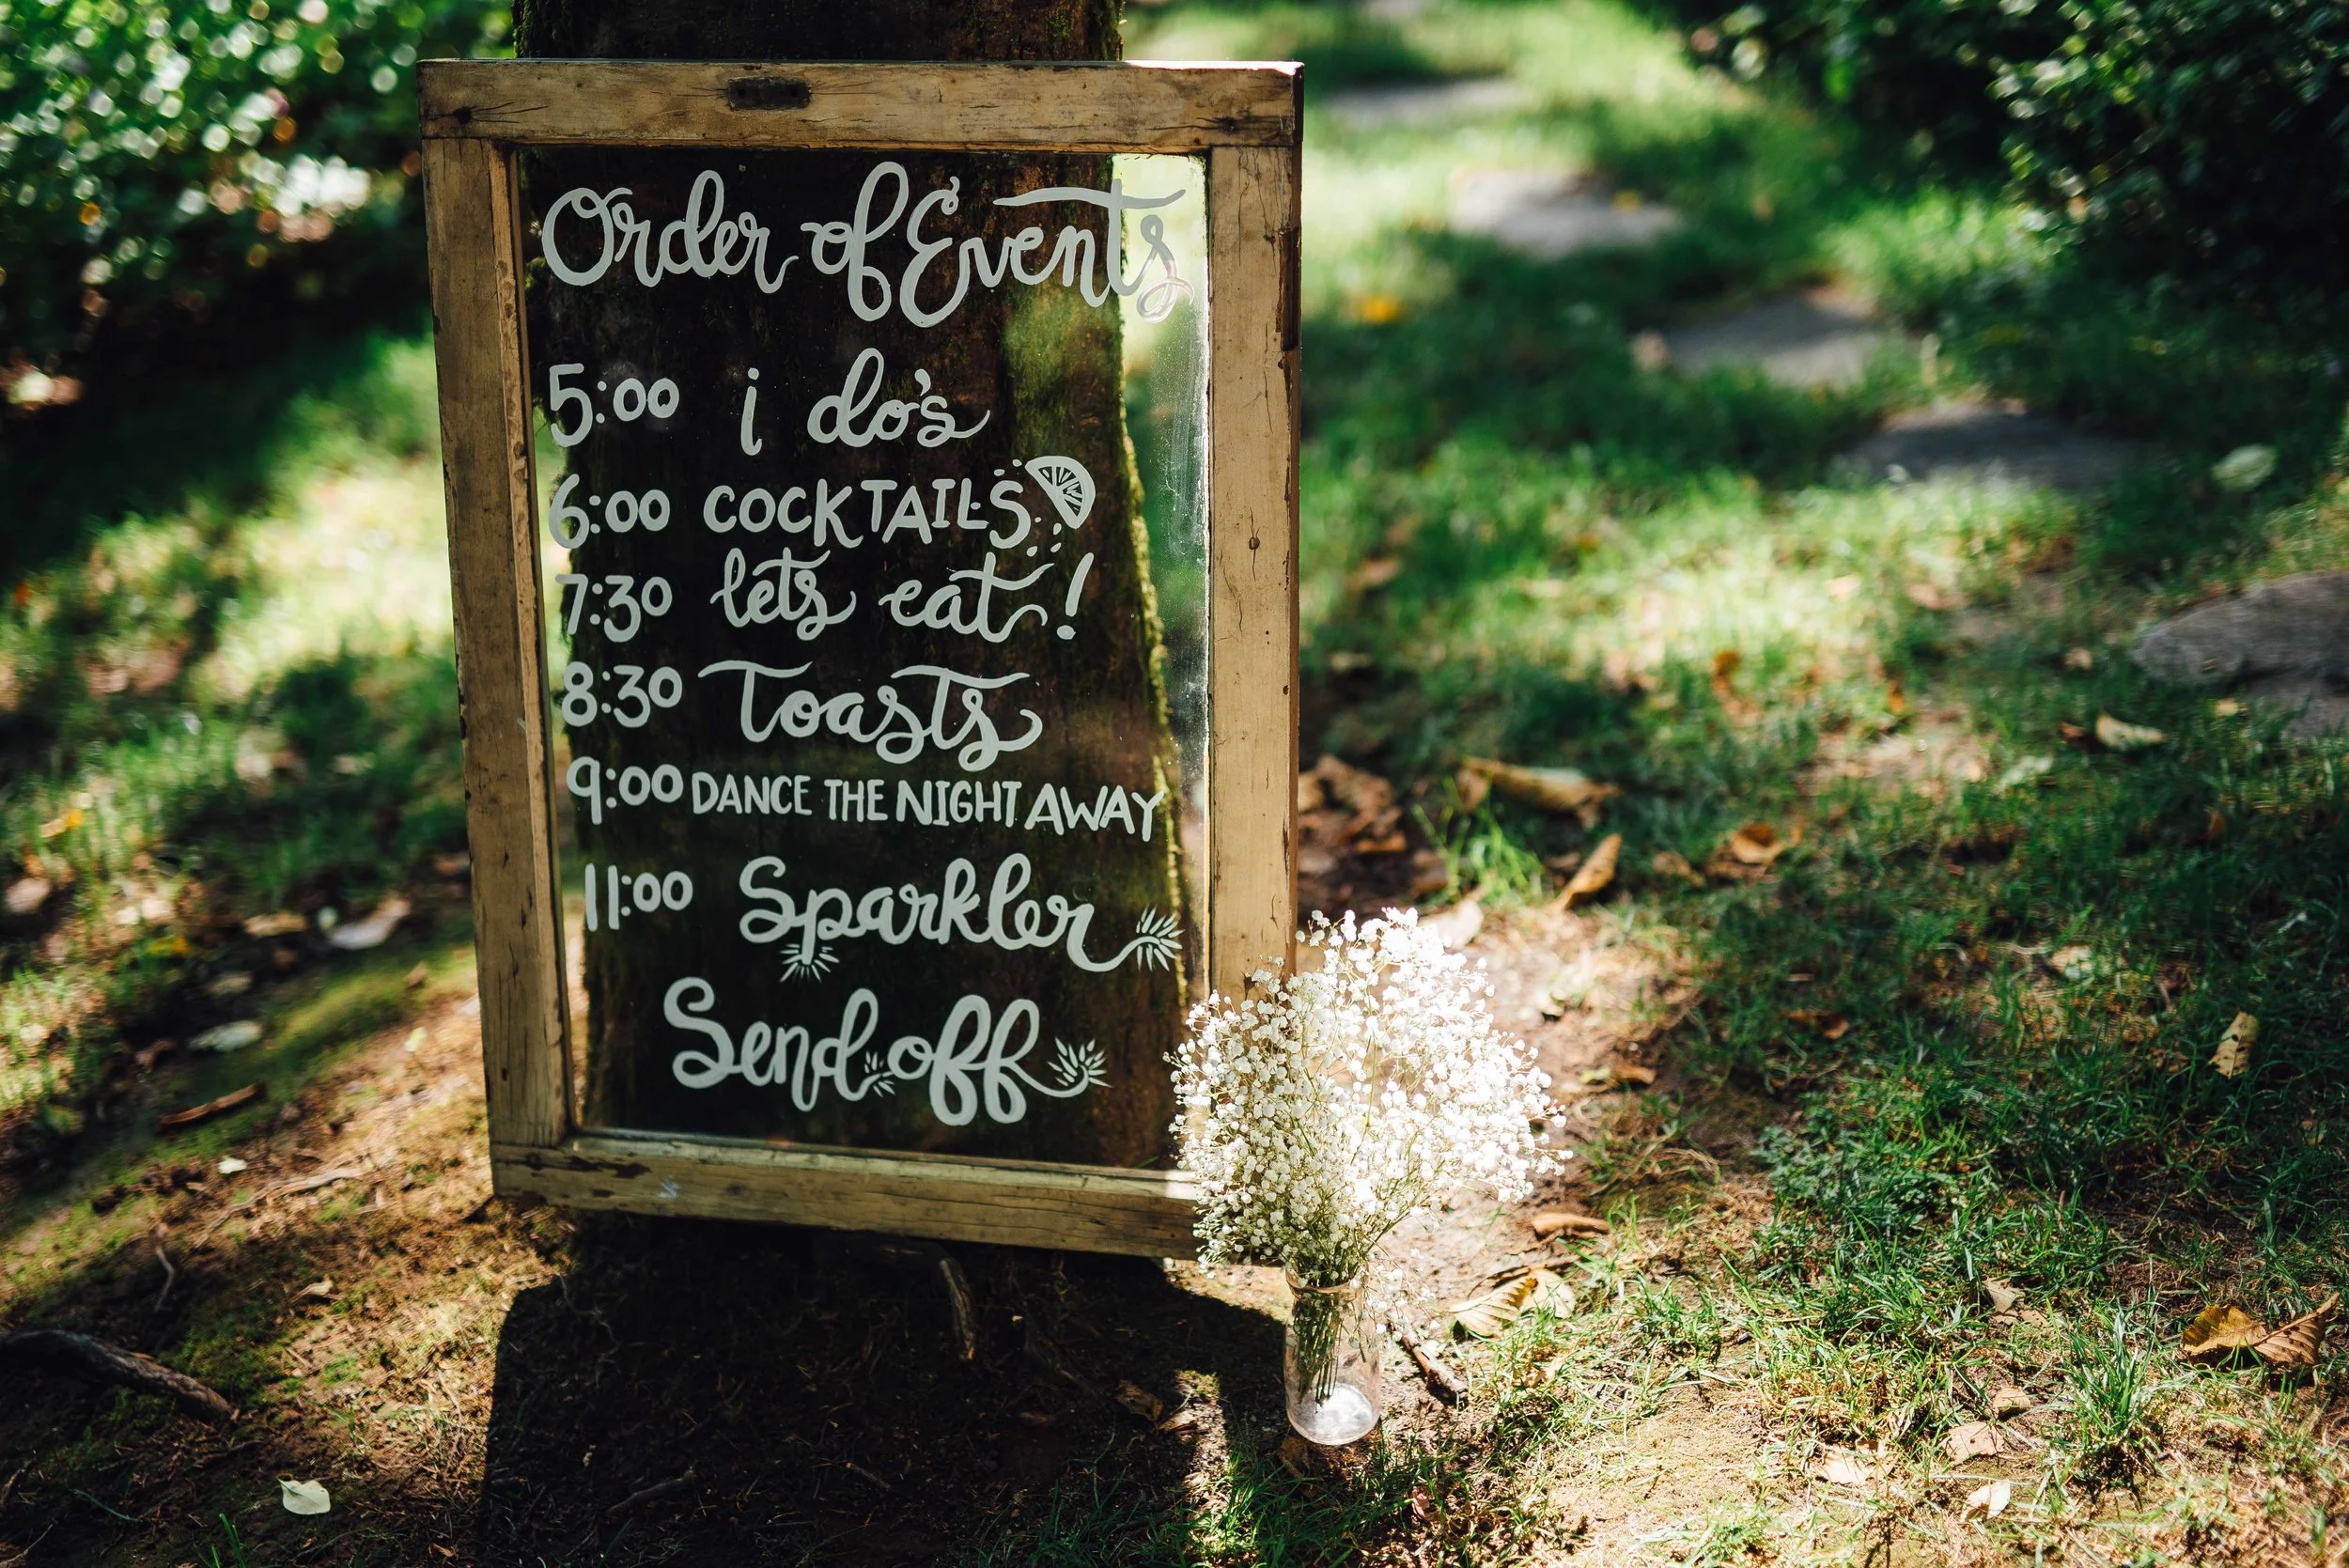 Order of Events
5:00 i do's
6:00 COCKTAILS
7:30 lets eat!
8:30 Toasts
9:00 DANCE THE NIGHT AWAY
11:00 Sparkler
Send off